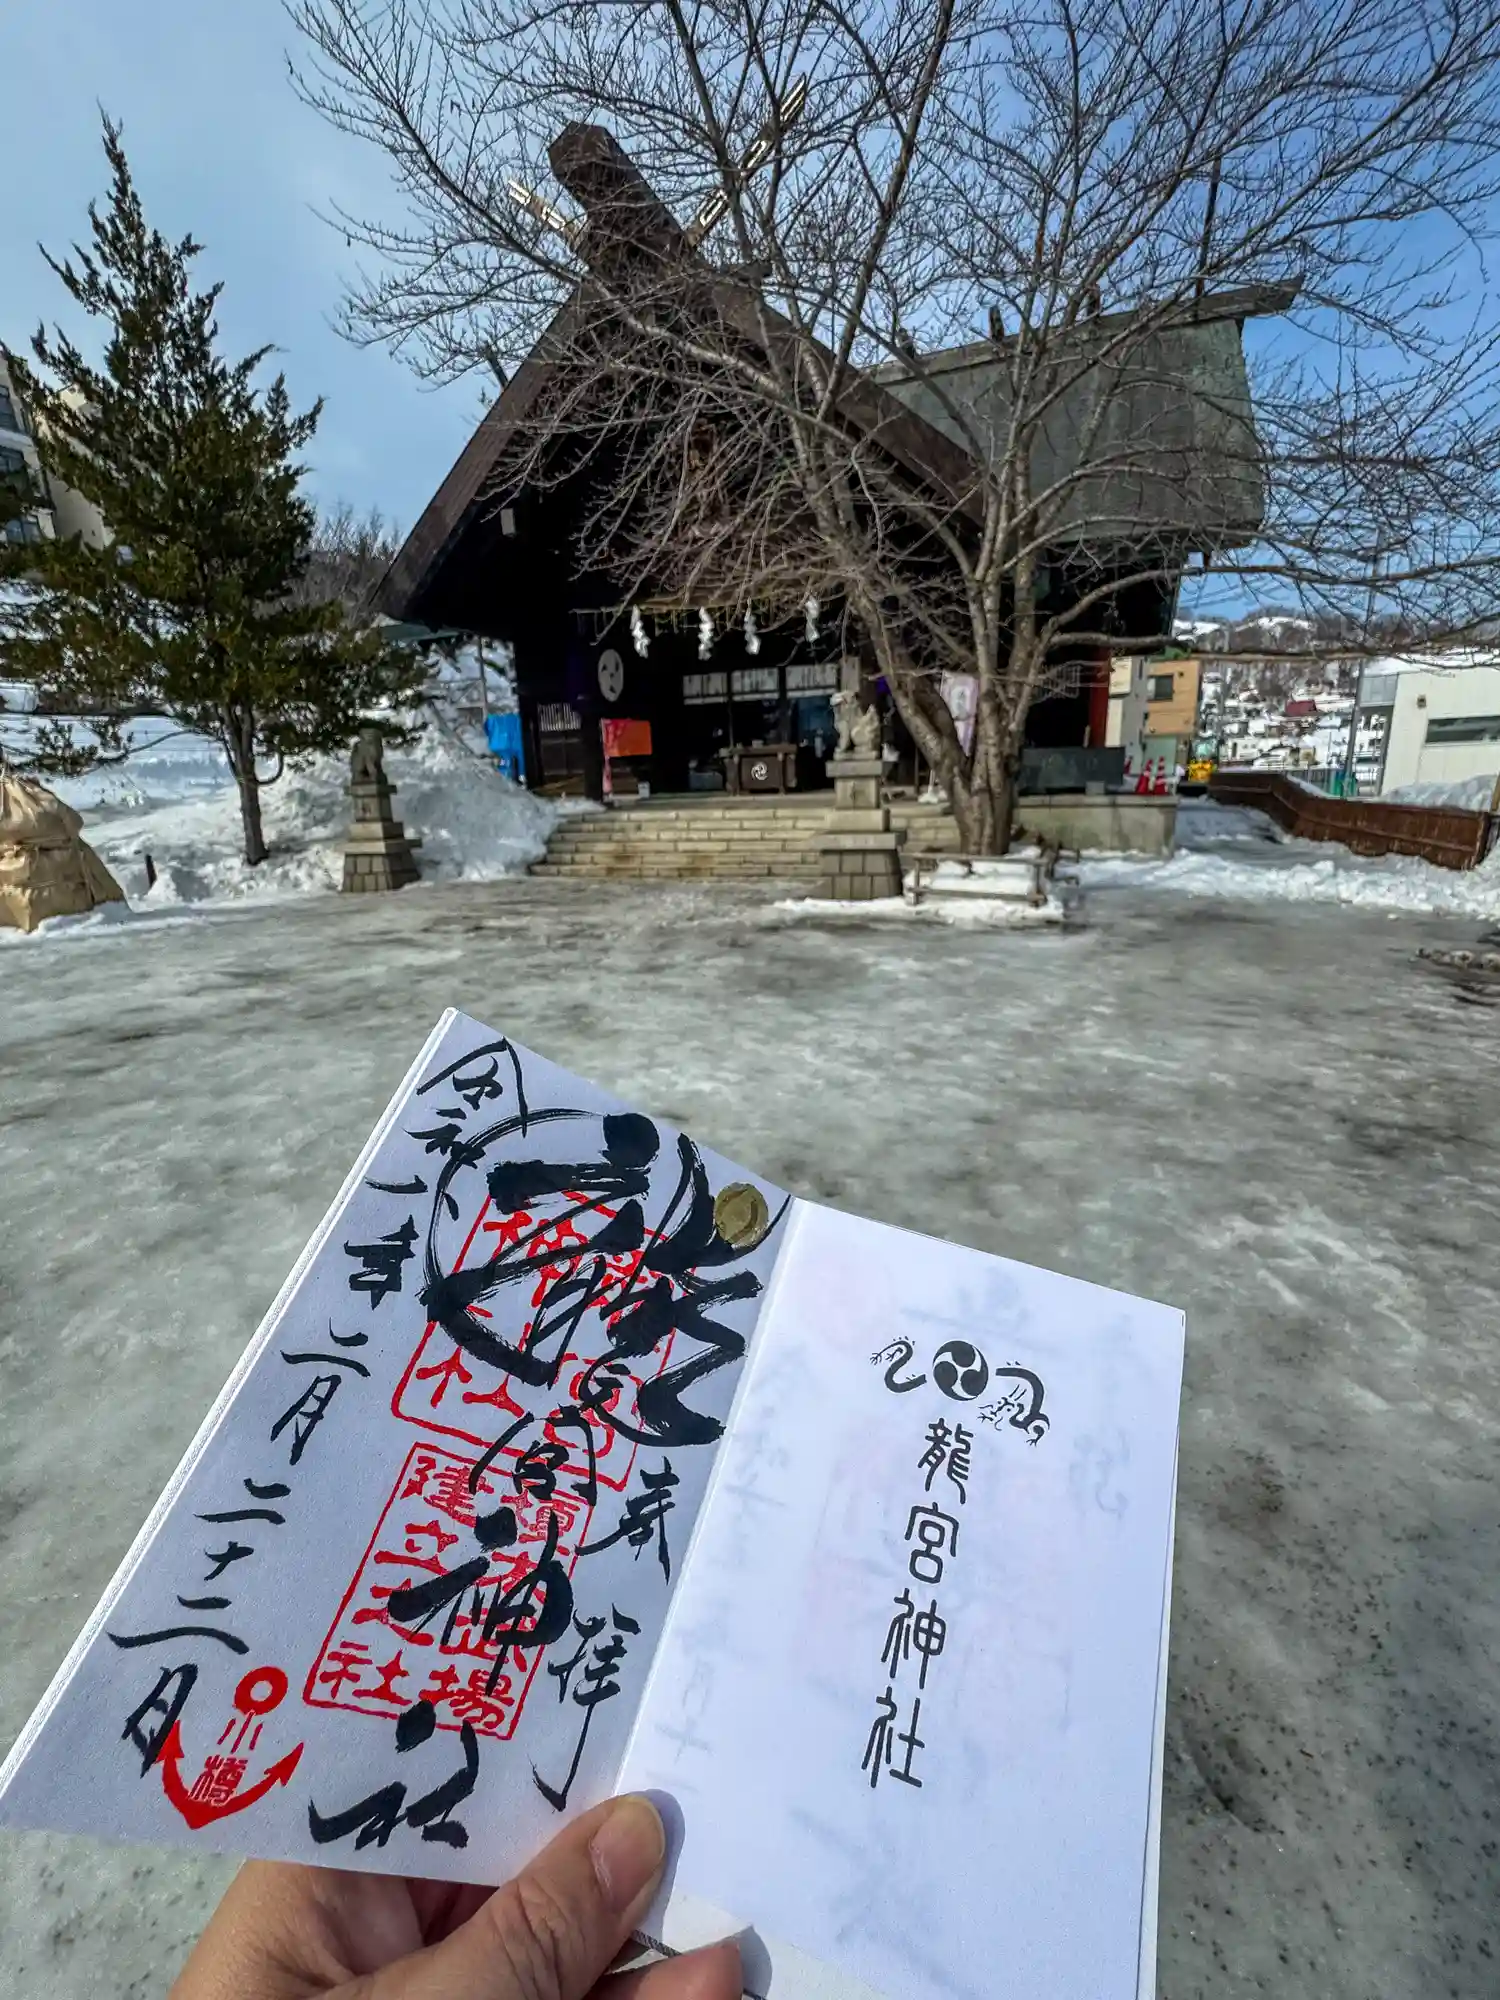 龍宮神社
奉拝
龍宮神社
龍宮
神社
榎本武揚
建立之社
令和六年二月二十二日
小樽